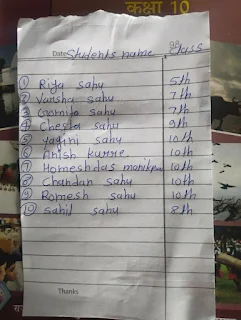 कक्षा 10
Date Students name Class
① Riya sahu 5th
② Varsha sahu 7th
③ sahu 7th
④ Chesta sahu 9th
⑤ Yagini sahu 10th
⑥ Anish kurre 10th
⑦ Homeshdas manikpuri 10th
⑧ Chandan sahu 10th
⑨ Romesh sahu 10th
⑩ sahil sahu 8th
Thanks